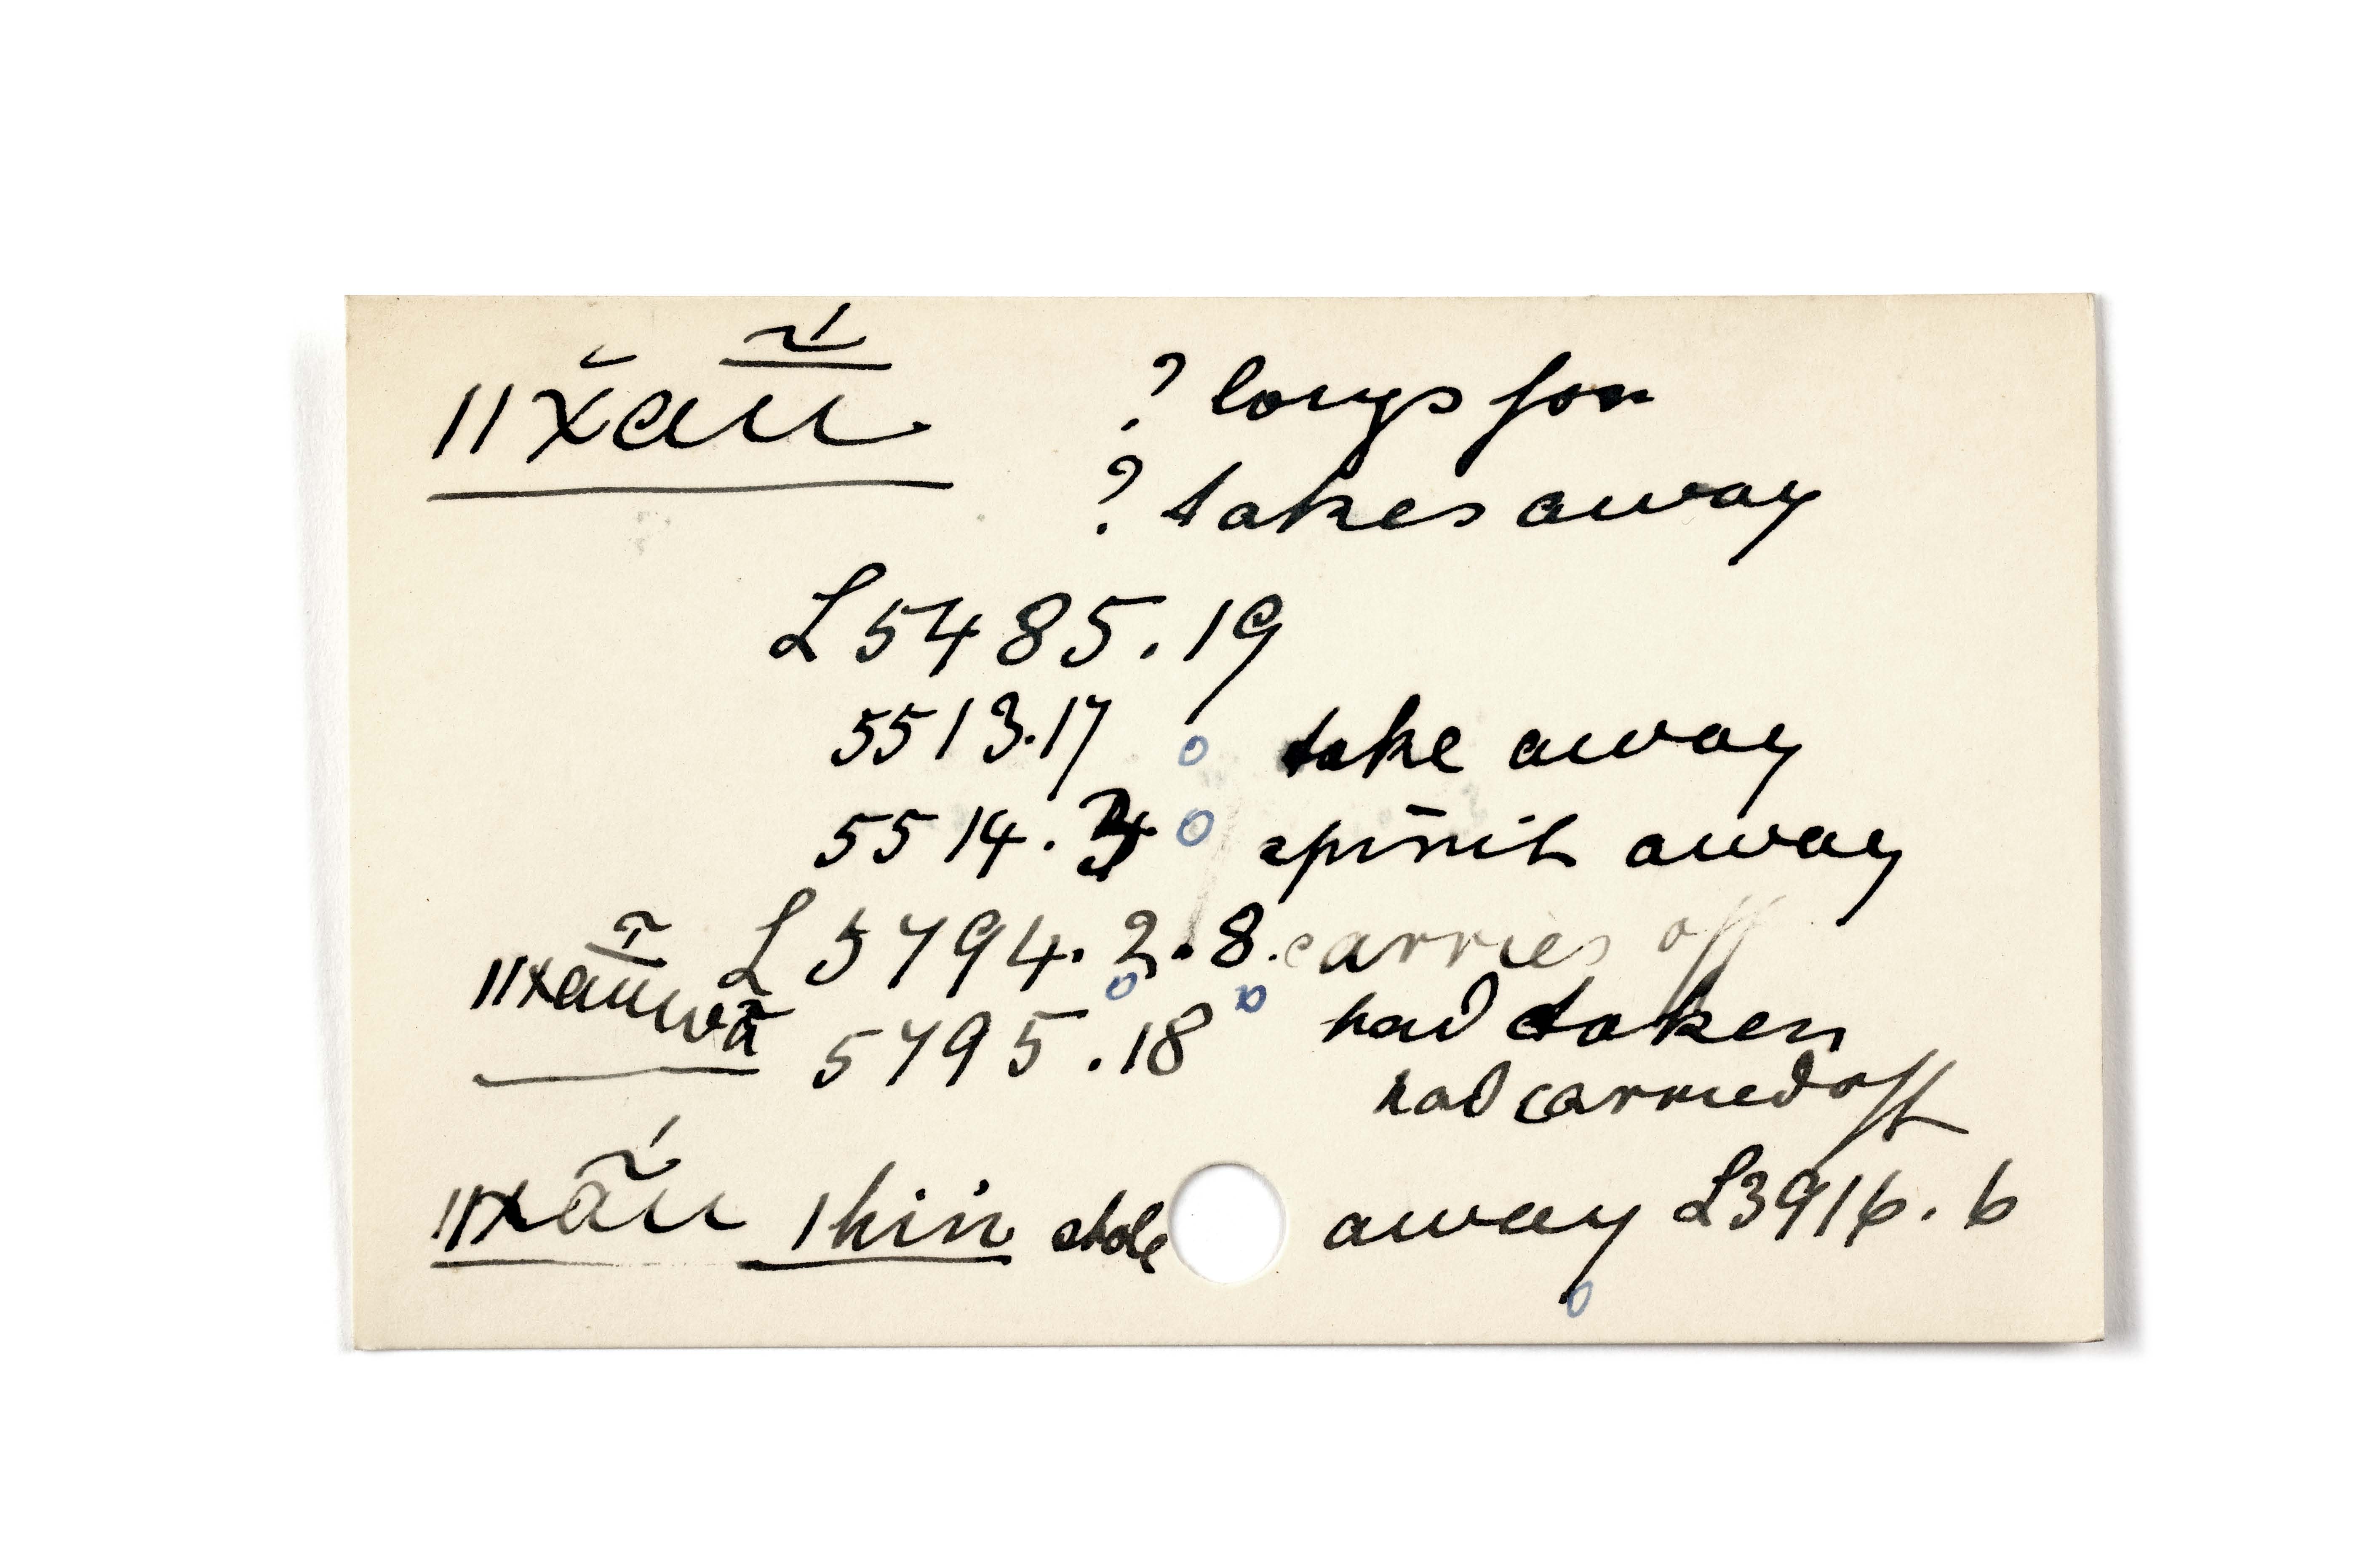 ǁx̆aṹ ? longs for
? takes away
L 5485.19
5513.17 o take away
5514. o spirit away
L 5794.2.8. carries off
ǁxaũwā 5795.18 had taken
had carried off
ǁxãú ǀhiń stole away L3916.6